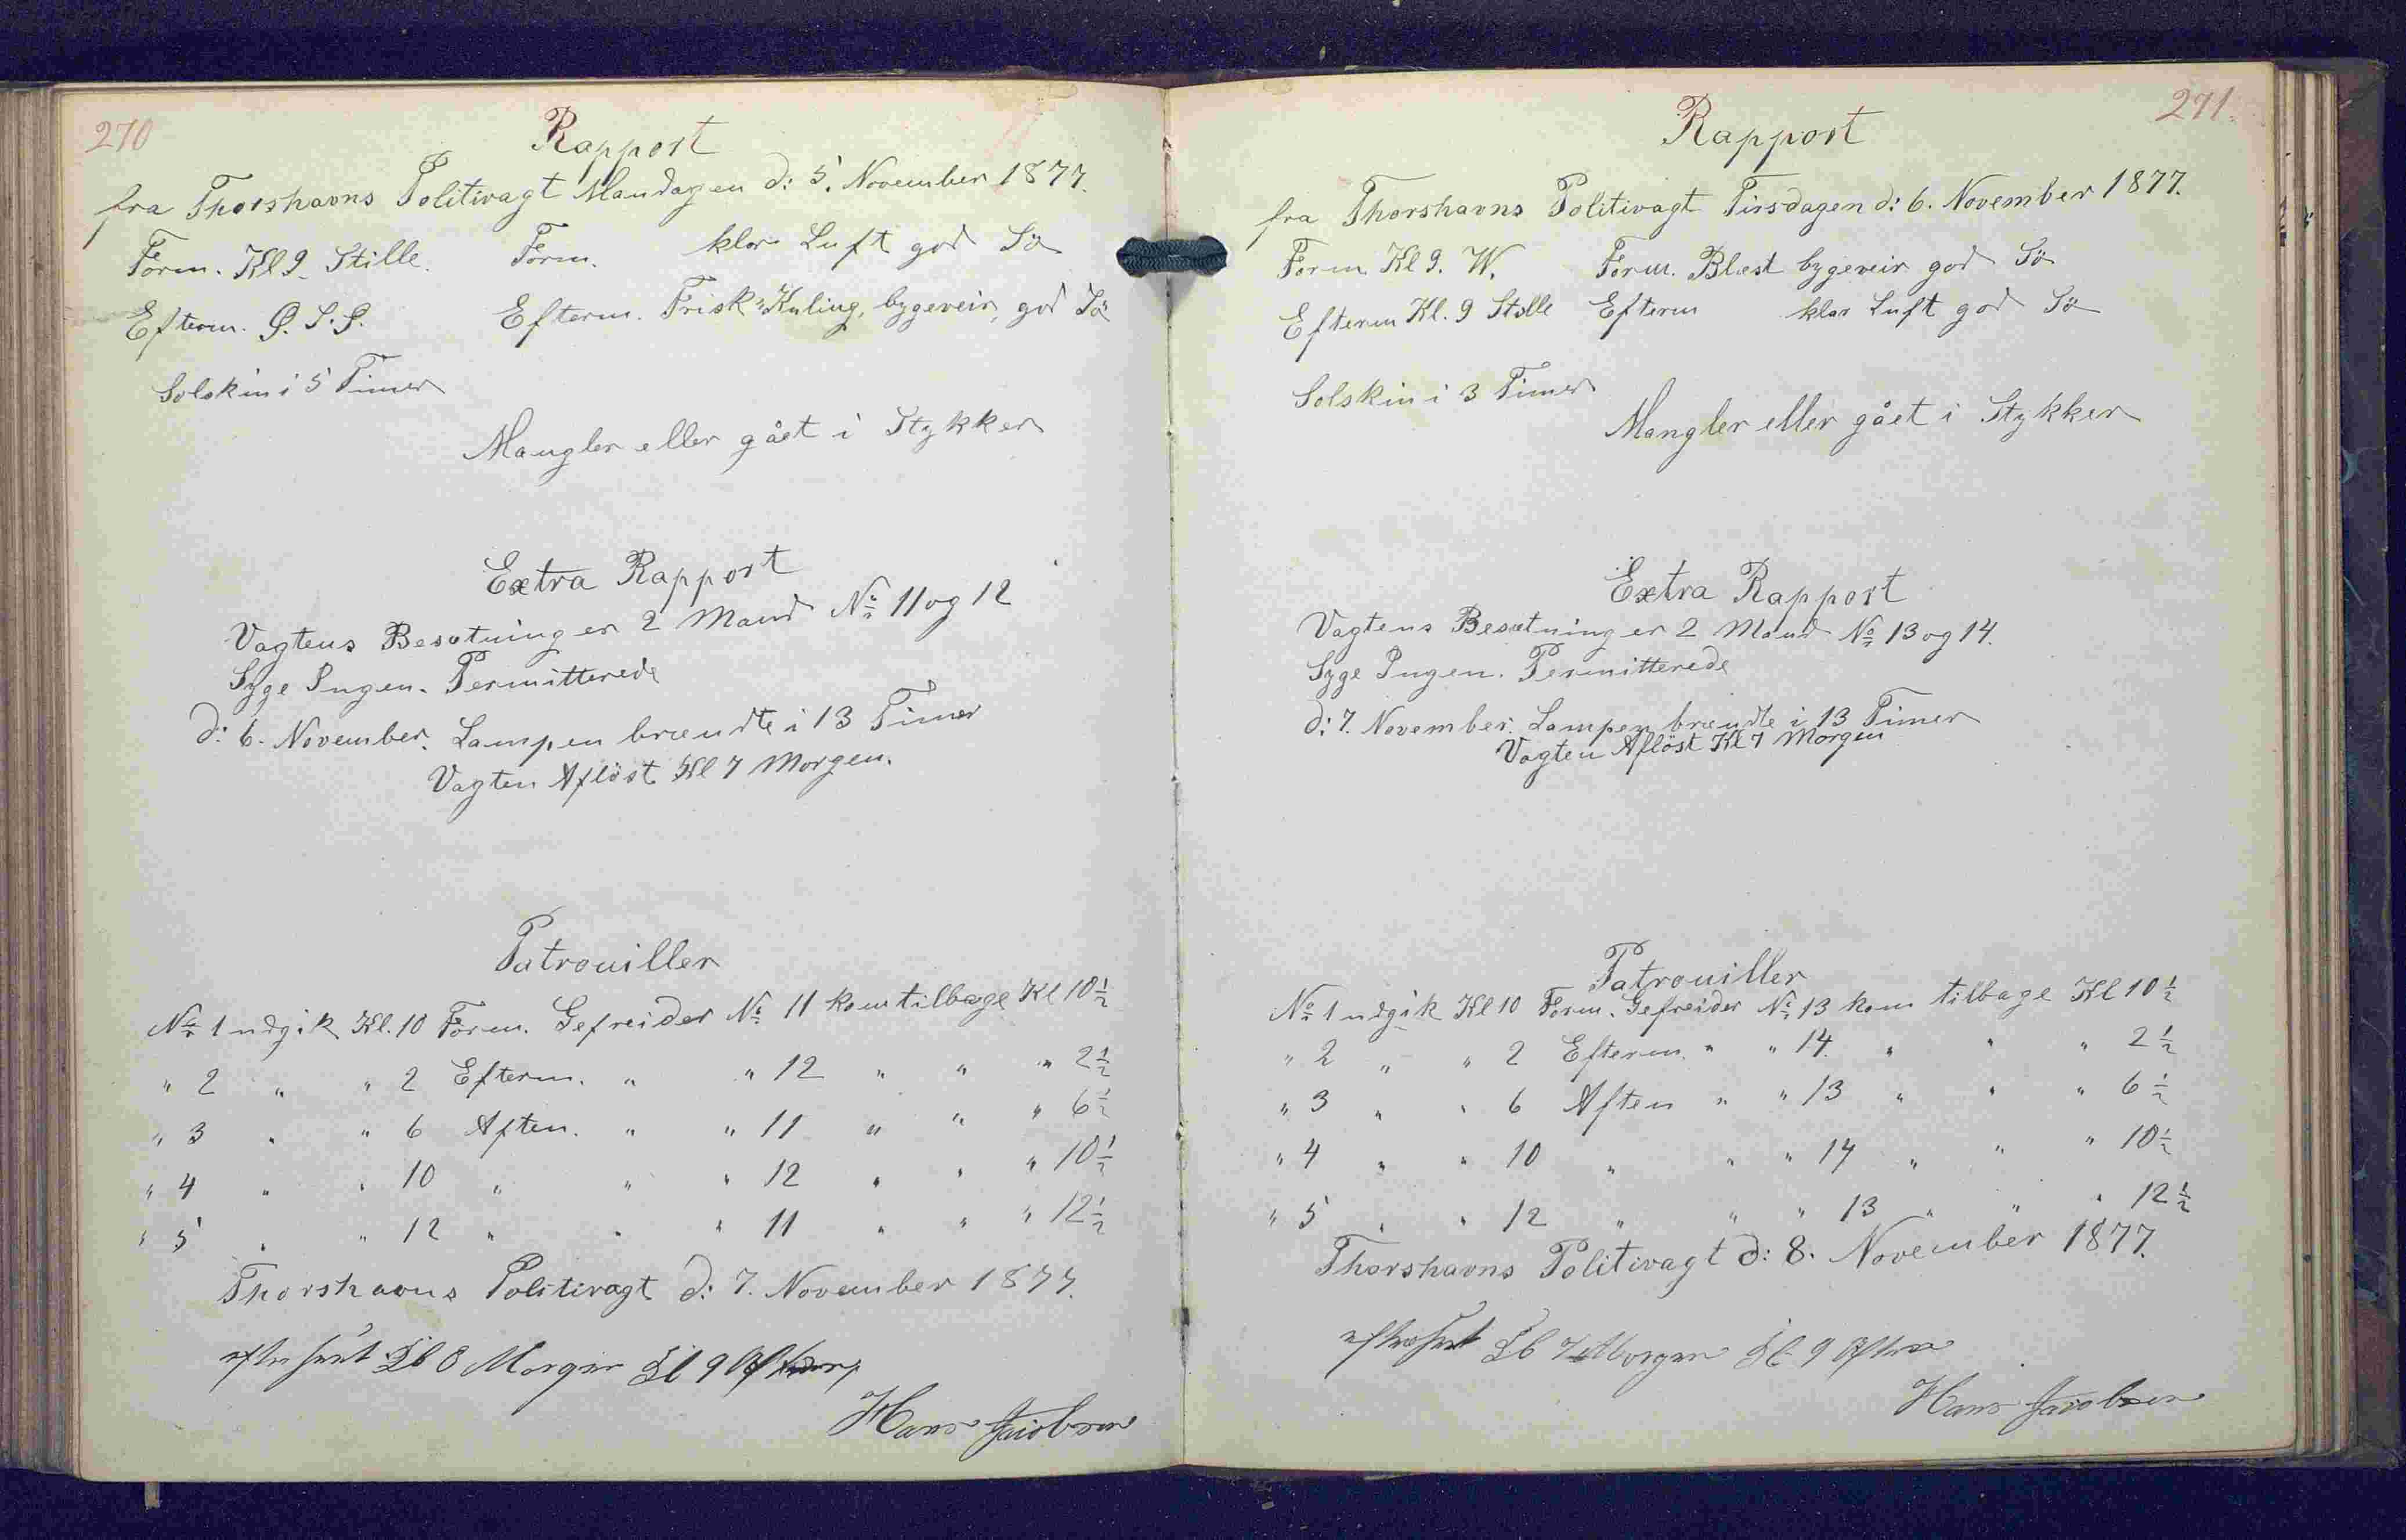 270
Rapport
fra Thorshavns Politivagt Mandagen d: 5. November 1877.
Form. Kl 9 Stille. Form. klar Luft god Sö
Efterm. Ø. S. Ø. Efterm. Frisk Kuling, bygeveir, god Sö
Solskin i 5 Timer
Mangler eller gået i Stykker
Extra Rapport
Vagtens Besætning er 2 Mand No 11 og 12
Syge Ingen. Permitterede
d: 6. November. Lampen brændte i 13 Timer
Vagten Aflöst Kl 7 Morgen.
Patrouiller
No 1 udgik Kl. 10 Form. Gefreider No 11 kom tilbage Kl 10 1/2
" 2 " " 2 Efterm. " " 12 " " " 2 1/2
" 3 " " 6 Aften. " " 11 " " " 6 1/2
" 4 " " 10 " " " 12 " " " 10 1/2
" 5 " " 12 " " " 11 " " " 12 1/2
Thorshavns Politivagt d: 7. November 1877.
efterseet Kl 8 Morgen Kl 9
Hans Jacobsen
271.
Rapport
fra Thorshavns Politivagt Tirsdagen d: 6. November 1877.
Form. Kl 9. W. Form. Blæst bygeveir god Sö
Efterm Kl. 9 Stille Efterm klar Luft god Sö
Solskin i 3 Timer
Mangler eller gået i Stykker
Extra Rapport
Vagtens Besætning er 2 Mand No 13 og 14.
Syge Ingen. Permitterede
d: 7. November. Lampen brændte i 13 Timer
Vagten Aflöst Kl 7 Morgen
Patrouiller
No 1 udgik Kl 10 Form. Gefreider No 13 kom tilbage Kl 10 1/2
" 2 " " 2 Efterm. " " 14. " " " 2 1/2
" 3 " " 6 Aften " " 13 " " " 6 1/2
" 4 " " 10 " " " 14 " " " 10 1/2
" 5 " " 12 " " " 13 " " " 12 1/2
Thorshavns Politivagt d: 8. November 1877.
efterseet Kl 7 Morgen Kl 9 Aften
Hans Jacobsen